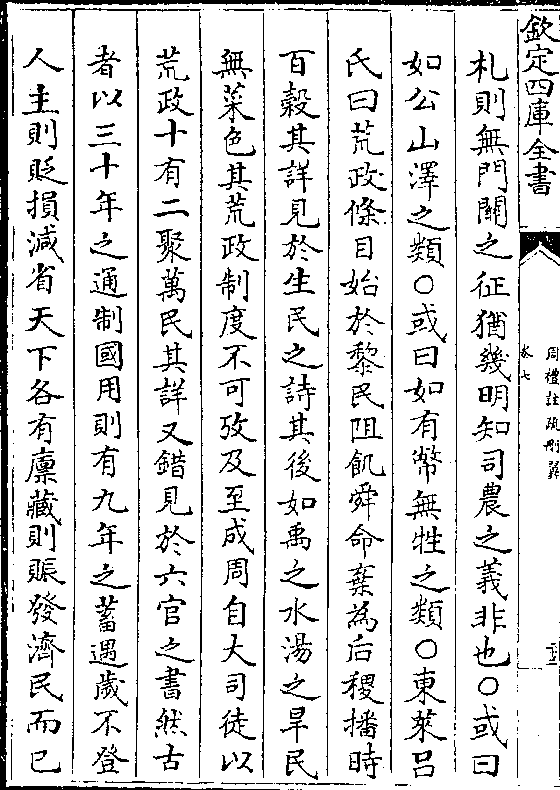 欽定四庫全書
周禮註疏刪翼
卷七
札則無門關之征猶幾明知司農之義非也○或曰
如公山澤之類○或曰如有幣無牲之類○東萊吕
氏曰荒政條目始於黎民阻飢舜命棄為后稷播時
百榖其詳見於生民之詩其後如禹之水湯之旱民
無菜色其荒政制度不可攷及至成周自大司徒以
荒政十有二聚萬民其詳又錯見於六官之書然古
者以三十年之通制國用則有九年之蓄遇歲不登
人主則貶損減省天下各有廪藏則賑發濟民而已